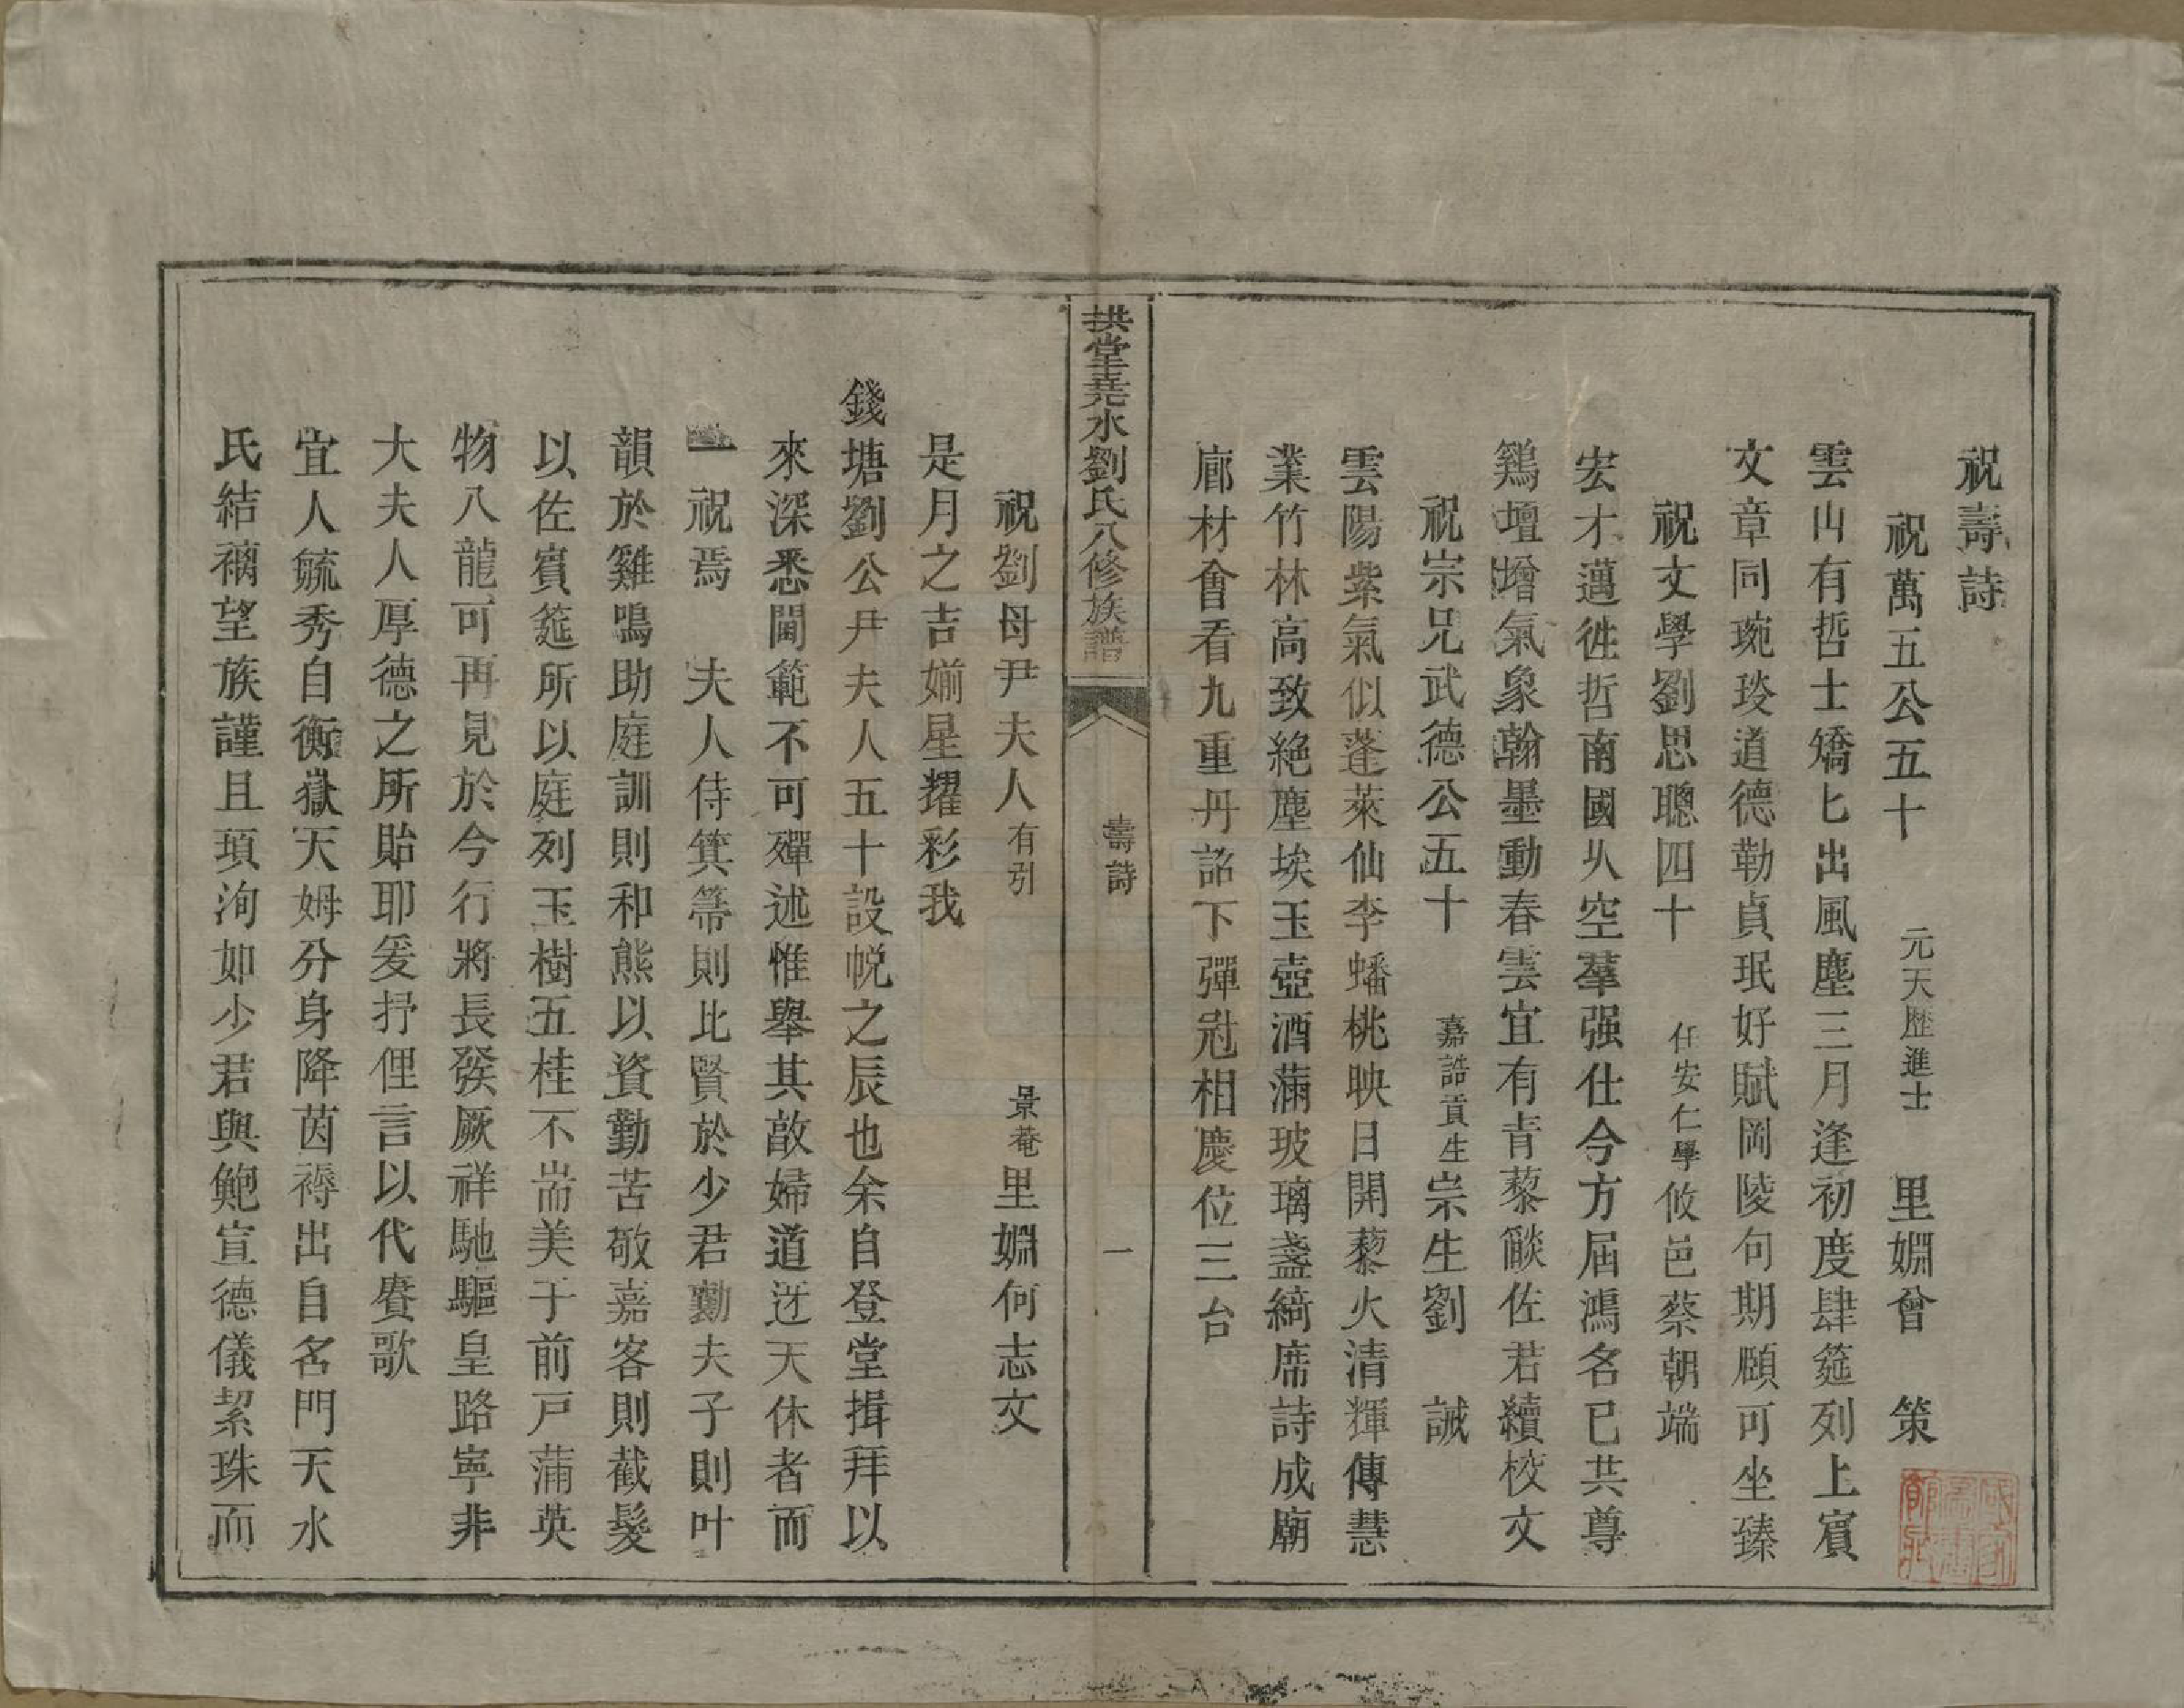 祝壽詩
祝萬五公五十　元天歷進士　里婣曾　策
雲山有哲士矯匕出風塵三月逢初度肆筵列上賓
文章同琬琰道德勒貞珉好賦岡陵句期頤可坐臻
祝文學劉思聰四十　任安仁學　攸邑蔡朝端
宏才邁徃哲南國乆空羣强仕今方屆鴻名已共尊
鷄壇增氣象翰墨動春雲宜有青藜燄佐若續校文
祝宗兄武德公五十　嘉誥貢生　宗生劉　誠
雲陽紫氣似蓬萊仙李蟠桃映日開藜火清輝傳慧
業竹林高致絶塵埃玉壺酒滿玻璃盞綺席詩成廟
廊材會看九重丹詔下彈冠相慶位三台
拱堂堯水劉氏八修族譜　壽詩　一
祝劉母尹夫人有引　景菴里婣何志文
是月之吉婺星耀彩我
錢塘劉公尹夫人五十設帨之辰也余自登堂揖拜以
來深悉閫範不可殫述惟舉其敵婦道迓天休者而
一祝焉　夫人侍箕箒則比賢於少君勷夫子則叶
韻於雞鳴助庭訓則和熊以資勤苦敬嘉客則截髮
以佐賓筵所以庭列玉樹五桂不耑美于前戸蒲英
物八龍可再見於今行將長發厥祥馳驅皇路寧非
大夫人厚德之所貽耶爰抒俚言以代賡歌
宜人毓秀自衡嶽天姆分身降茵褥出自名門天水
氏結褵望族謹且頊洵如少君與鮑宣德儀絜珠而